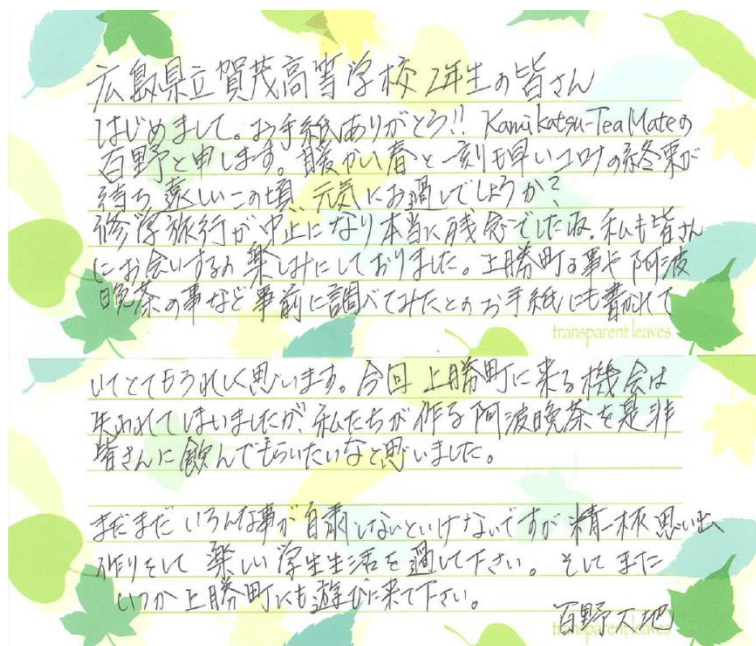 広島県立賀茂高等学校 2年生の皆さん
はじめまして。お手紙ありがとう!! Kamikatsu-TeaMateの
百野と申します。暖かい春と一刻も早いコロナの終束が
待ち遠しいこの頃 元気にお過しでしょうか?
修学旅行が中止になり本当に残念でしたね。私も皆さん
にお会いするの楽しみにしておりました。上勝町の事や阿波
晩茶の事など事前に調べてみたとのお手紙にも書かれて
transparent leaves
いてとてもうれしく思います。今回 上勝町に来る機会は
失われてしまいましたが、私たちが作る阿波晩茶を是非
皆さんに飲んでもらいたいなと思いました。
まだまだ いろんな事が自粛しないといけないですが 精一杯 思い出
作りをして 楽しい学生生活を過して下さい。 そして また
いつか上勝町にも遊びに来て下さい。
百野大地
transparent leaves